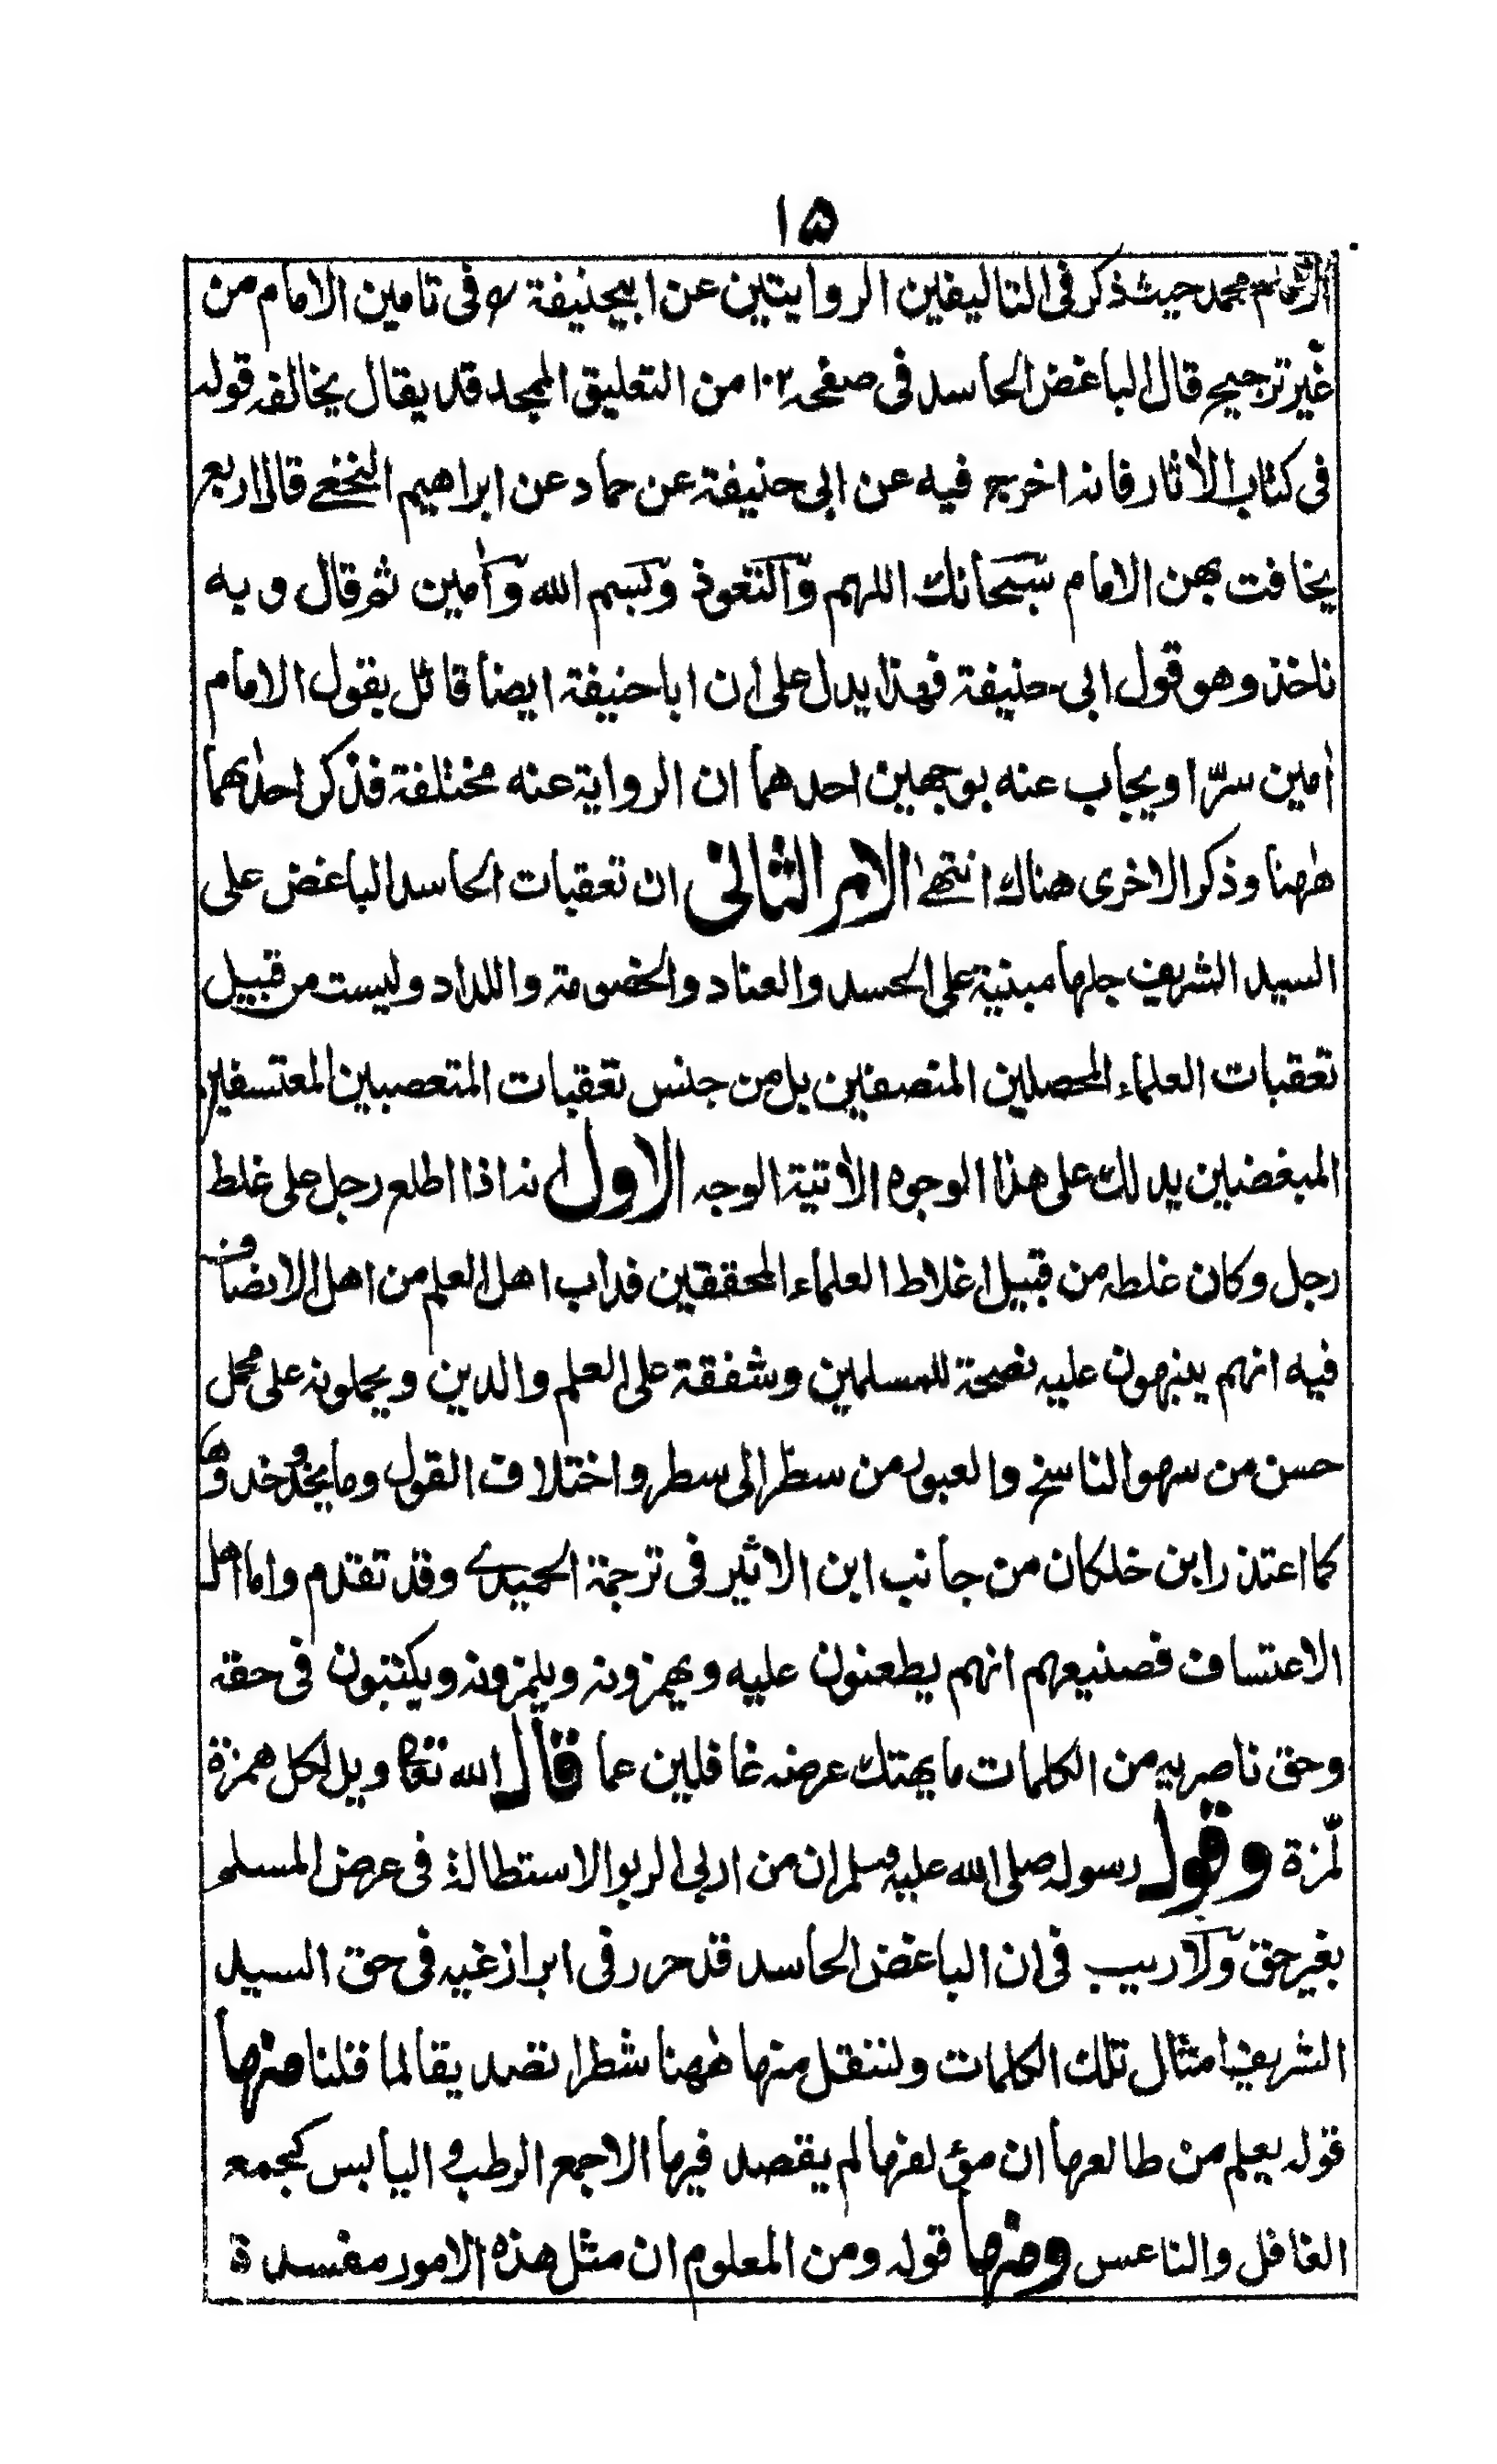 ١٥
الامام محمد حيث ذكر فى التاليفين الروايتين عن ابيحنيفة رح فى تامين الامام من
غير ترجيح قال الباغض الحاسد فى صفحه ١٠٢ من التعليق الممجد قد يقال يخالفه قوله
فى كتاب الأثار فانه اخرج فيه عن ابى حنيفة عن حماد عن ابراهيم النخعے قال اربع
يخافت بهن الامام سبحانك اللهم والتعوذ وبسم الله وآمين ثم قال و به
ناخذ وهو قول ابى حنيفة فهذا يدل على ان ابا حنيفة ايضا قائل بقول الامام
أمين سرّا ويجاب عنه بوجهين احدهما ان الرواية عنه مختلفة فذكر احدٰهما
هٰهنا وذكر الاخرى هناك انتهٰے الامر الثانى ان تعقبات الحاسد الباغض على
السيد الشريف جلها مبنية على الحسد والعناد والخصومة واللداد وليست من قبيل
تعقبات العلماء المحصلين المنصفين بل من جنس تعقبات المتعصبين المعتسفين
المبغضين يدلك على هذا الوجوه الأتية الوجه الاول انه اذا اطلع رجل على غلط
رجل وكان غلطه من قبيل اغلاط العلماء المحققين فداب اهل العلم من اهل الانصاف
فيه انهم ينبهون عليه نصيحة للمسلمين وشفقة على العلم والدين ويحملونه على محمل
حسن من سهو الناسخ والعبور من سطر الى سطر واختلاف القول وما يحذو حذوها
كما اعتذر ابن خلكان من جانب ابن الاثير فى ترجمة الحميدے وقد تقدم واما اهل
الاعتساف فصنيعهم انهم يطعنون عليه ويهمزونه ويلمزونه ويكتبون فى حقه
وحق ناصريه من الكلمات ما يهتك عرضه غافلين عما قال الله تعالى ويل لكل همزة
لّمزة وقول رسوله صلى الله عليه وسلم ان من اربى الربوا الاستطالة فى عرض المسلم
بغير حق ولا ريب فى ان الباغض الحاسد قد حرر فى ابراز غيه فى حق السيد
الشريف امثال تلك الكلمات ولننقل منها هٰهنا شطرا تصديقا لما قلنا منها
قوله يعلم من طالعها ان مؤلفها لم يقصد فيها الا جمع الرطب و اليابس كجمع
الغافل والناعس ومنها قوله ومن المعلوم ان مثل هذه الامور مفسدة